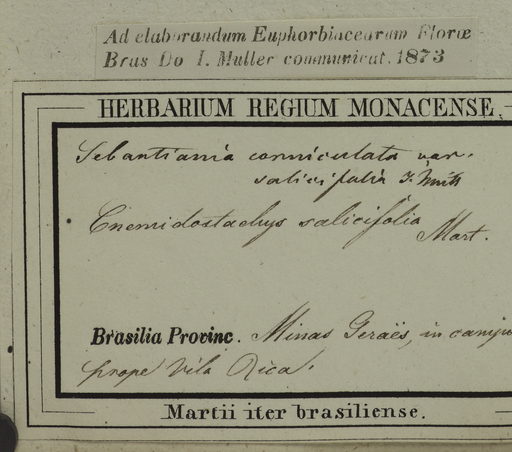 Ad elaborandum Euphorbiacearum Floræ
Bras Do I. Muller communicat. 1873
HERBARIUM REGIUM MONACENSE.
Sebantiania corniculata var.
salicifolia J. Müll
Cnemidostachys salicifolia
Mart.
Brasilia Provinc. Minas Geraës, in campo
prope Vila Rica.
Martii iter brasiliense.